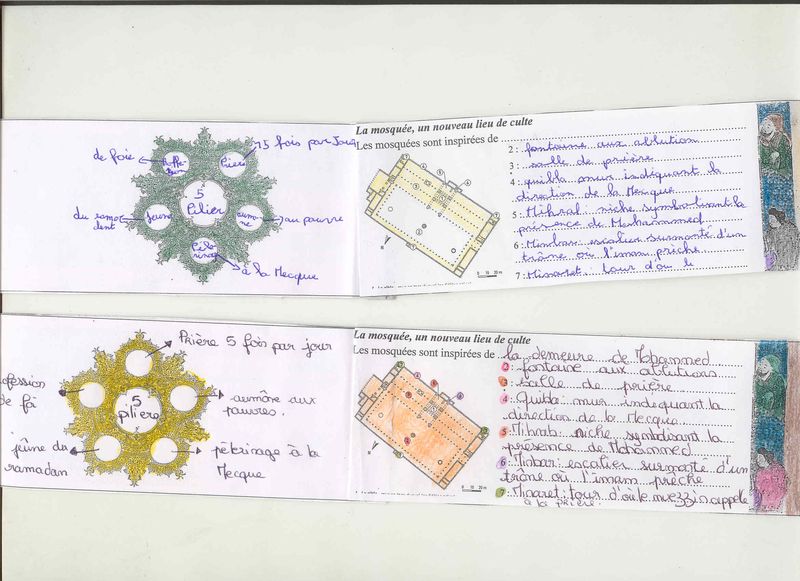 de foie
Proffe
ssion
Prière
5 fois par Jour
du rama
dent
Jeune
5
Pilier
aumo
ne
au pauvre
Pélé
rinage
à la Mecque
La mosquée, un nouveau lieu de culte
Les mosquées sont inspirées de
2 : fontaine aux ablution
3 : salle de prière
4 : quibla mur indiquant la
direction de la Mecque
5 : Mihrab : niche symbolisant la
présence de Mouhammed
6 : Minbar : escalier surmonté d'un
trône où l'imam prêche
7 : Minaret : tour d'où le
0 10 20 m
Prière 5 fois par jour
ofession
de foi
5
piliere
aumône aux
pauvres.
jeûne du
ramadan
pélerinage à la
Mecque
La mosquée, un nouveau lieu de culte
Les mosquées sont inspirées de la demeure de Mohammed
2 : fontaine aux ablutions
3 : Salle de prière
4 : Quibla : mur indiquant la
direction de la Mecque
5 : Mihrab : niche symbolisant la
présence de Mohammed
6 : Minbar : escalier surmonté d'un
trône où l'imam prêche
7 : Minaret : tour d'où le muezzin appele
à la prière.
0 10 20 m